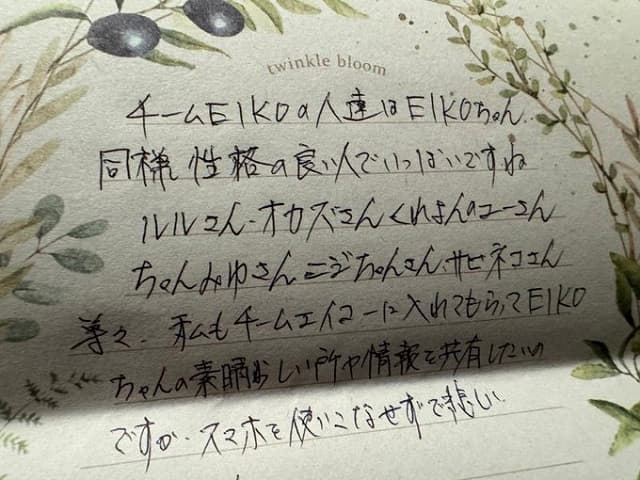 twinkle bloom
チームEIKOの人達はEIKOちゃん
同様 性格の良い人でいっぱいですね
ルルさん・オカズさん くれよんのユーさん
ちゃんみゆさん こじちゃんさん、サビネコさん
等々、私もチームエイコーに入れてもらってEIKO
ちゃんの素晴らしい所や情報を共有したいの
ですが、スマホを使いこなせずで悲しい